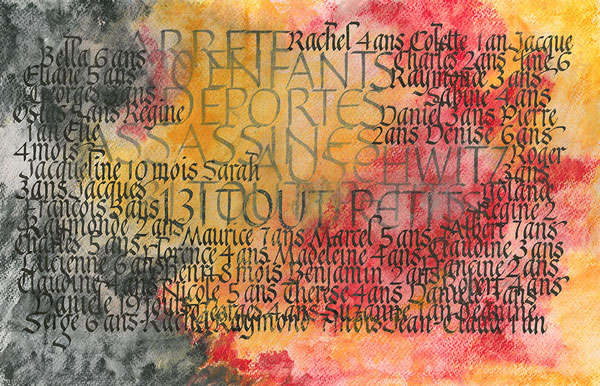 ARRETE Rachel 4 ans Colette 1 an Jacque
Bella 6 ans ENFANTS Charles 2 ans
Eliane 5 ans Raymonde 3 ans
Georges ans DEPORTES Sabine 4 ans
ans Régine Daniel 3 ans Pierre
1 an Elie ASSASSINES 2 ans Denise 6 ans
4 mois AUSCHWITZ Roger
Jacqueline 10 mois Sarah 3 ans
3 ans Jacques 131 TOUT PETITS Yolande
François Régine 2
Raymonde 2 ans Maurice 7 ans Marcel 5 ans Albert 7 ans
Charles 5 ans Florence 4 ans Madeleine 4 ans Claudine 3 ans
Lucienne 6 ans Henri 8 mois Benjamin 2 ans 2 ans
Claudine ans Nicole 5 ans Thérèse 4 ans Daniel ans
Danièle Georges 4 ans Suzanne 1 an
Serge 6 ans Rachel Raymond mois Jean-Claude 1 an